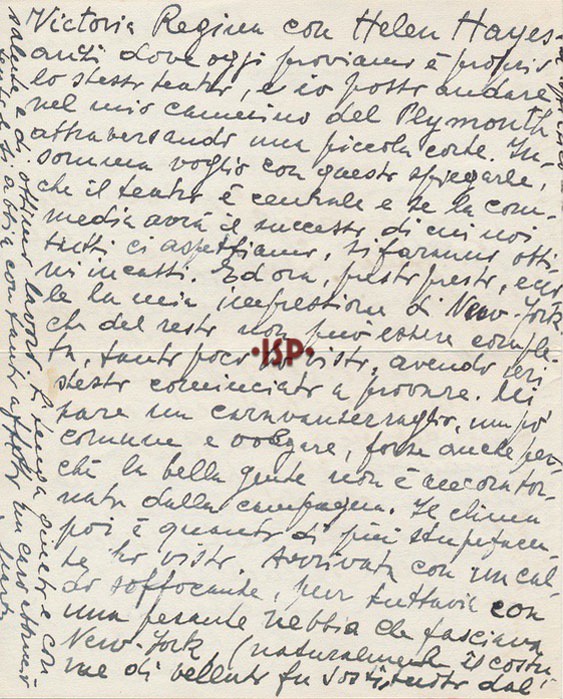 Victoria Regina con Helen Hayes-
anzi dove oggi proviamo è proprio
lo stesso teatro, e io posso andare
nel mio camerino del Plymonth
attraversando una piccola corte. In-
somma voglio con questo spiegarle,
che il teatro è centrale e se la com-
media avrà il successo di cui noi
tutti ci aspettiamo, si faranno otti-
mi incassi. Ed ora, presto presto, ecco
le la mia impressione di New-York
che del resto non può essere comple-
ta, tanto poco ho visto, avendo ieri
stesso cominciato a provare. Mi
pare un caravanserraglio, un po'
comune e volgare, forse anche per-
chè la bella gente non è ancora tor-
nata dalla campagna. Il clima
poi è quanto di più stupefacen-
te ho visto. Arrivata con un cal-
do soffocante, pur tuttavia con
una pesante nebbia che fasciava
New-York, (naturalmente il costu-
me di velluto fu sostituito dal
ISP
salute e di ottimo lavoro. Si tenga
questo e con
tanto affetto un caro abbraccio